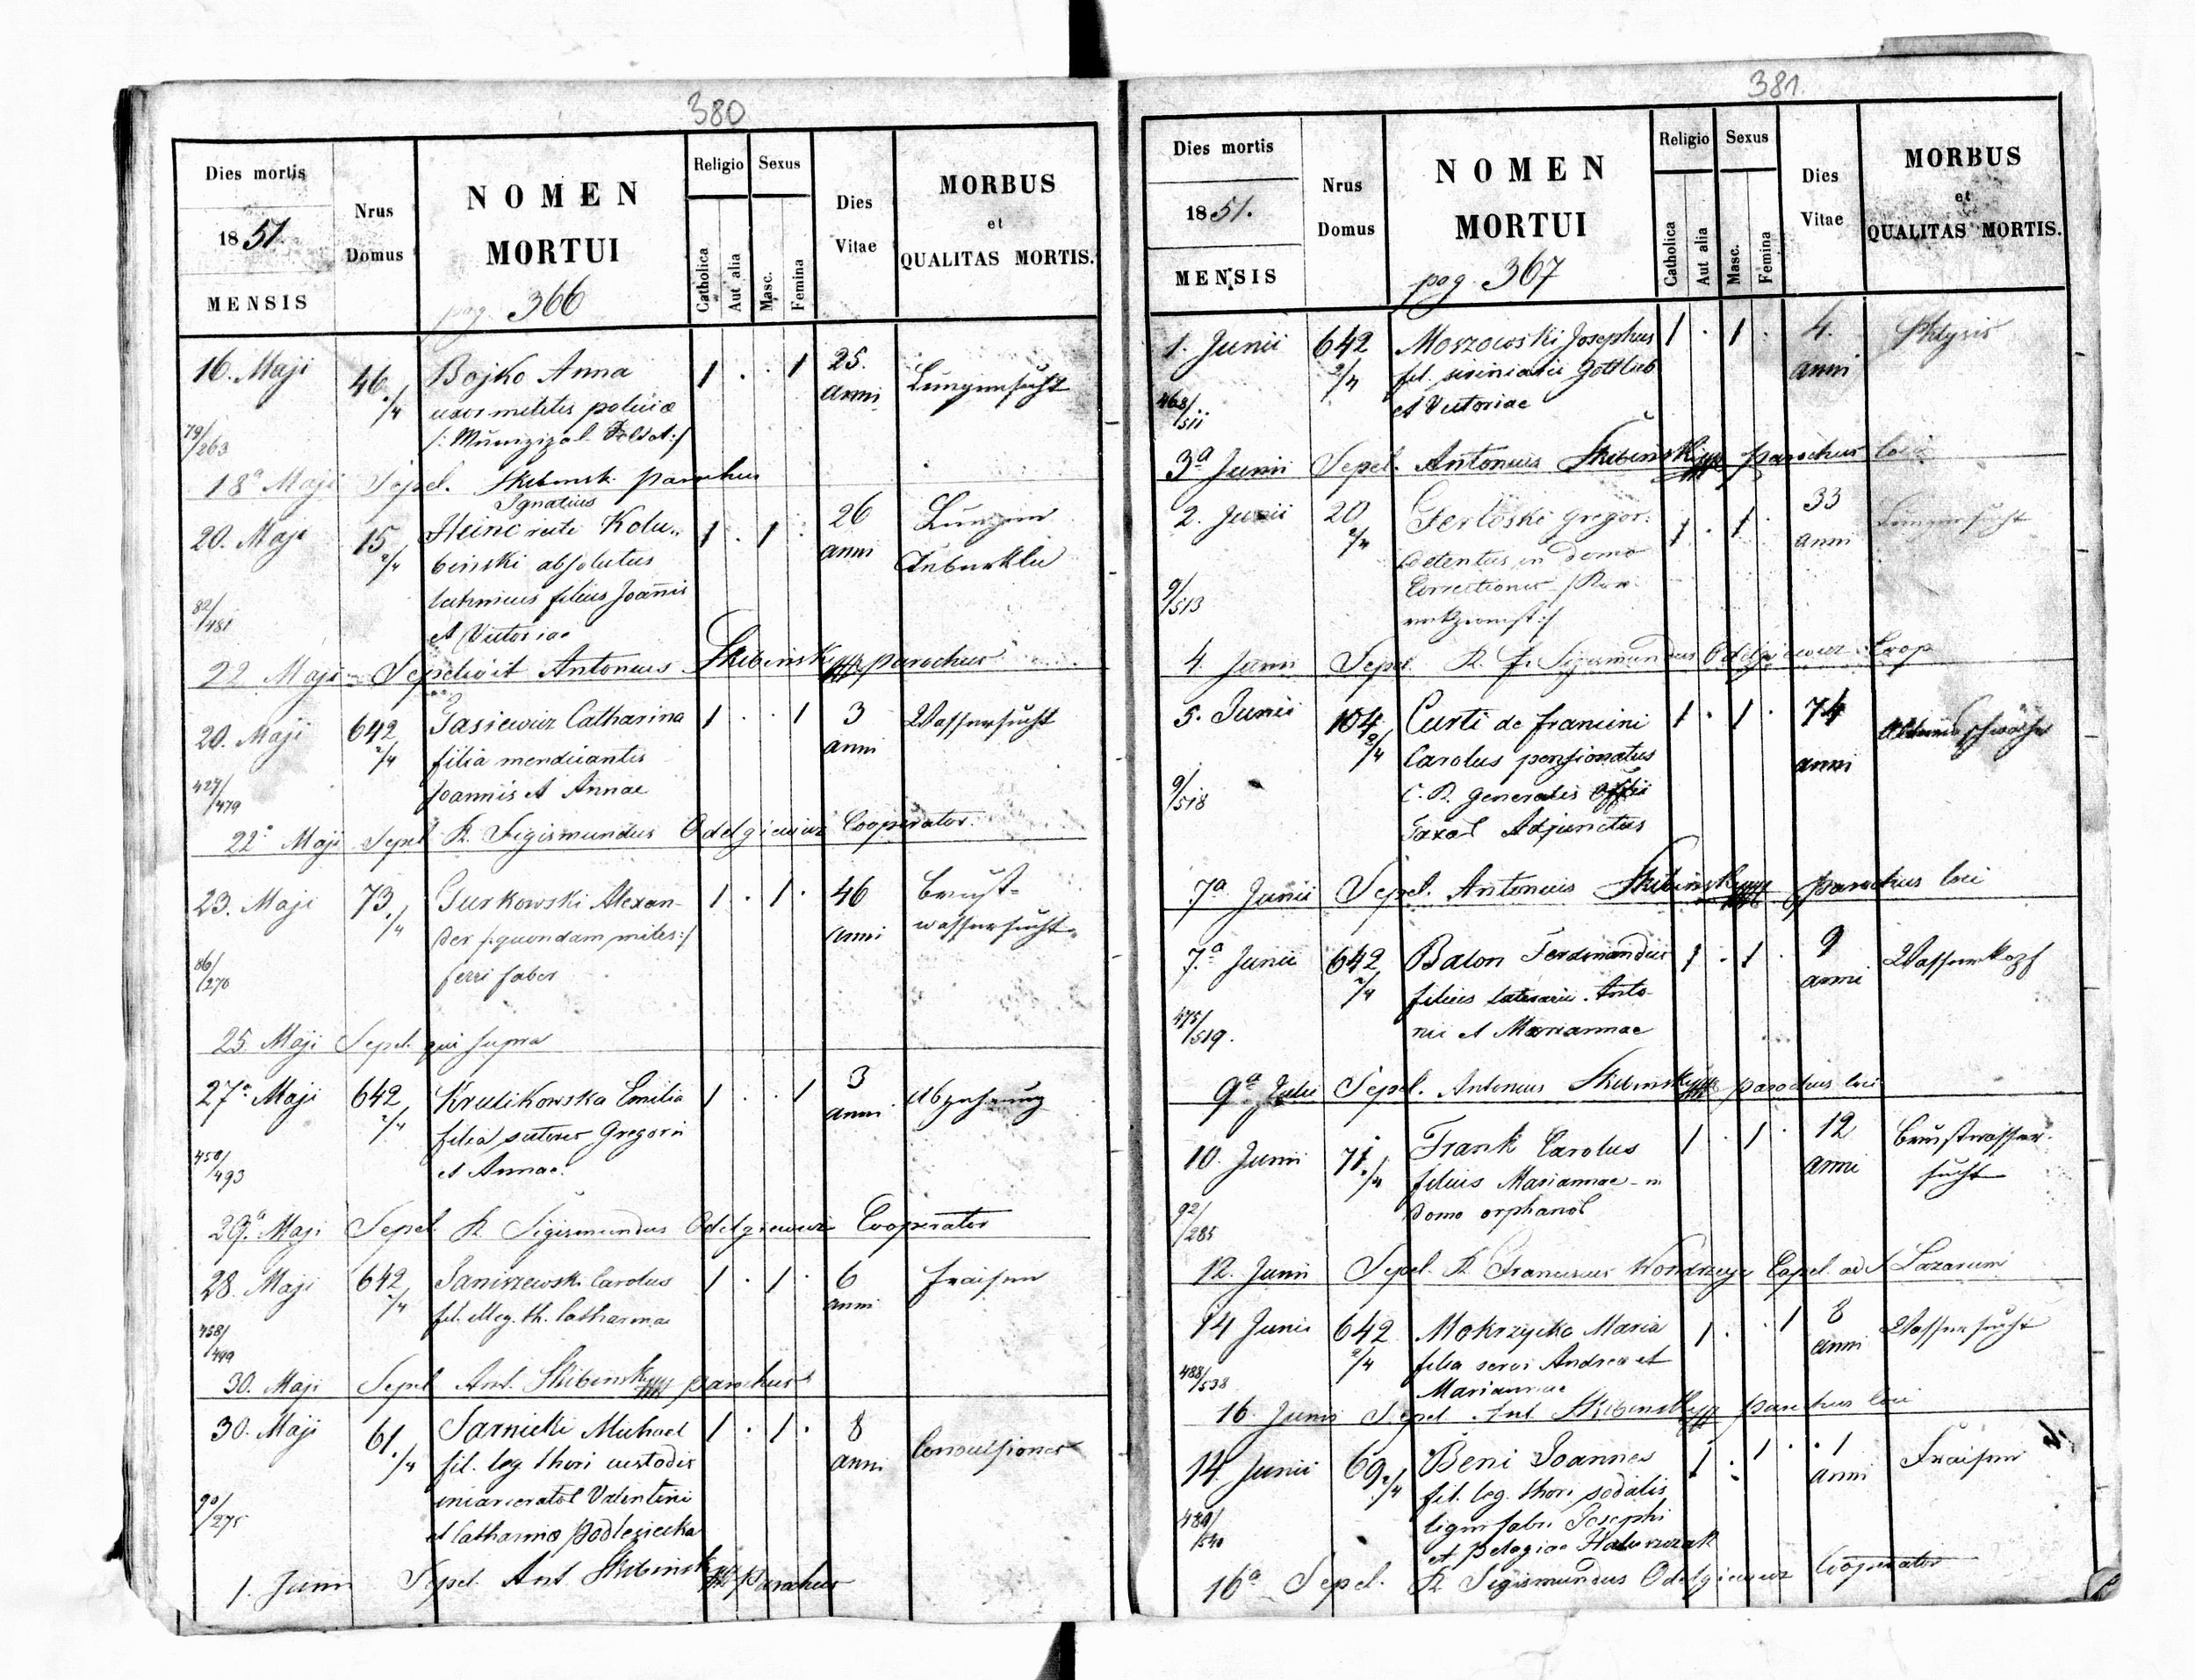 380
Dies mortis
1851.
MENSIS
Nrus
Domus
NOMEN
MORTUI
pag. 366
Religio
Catholica
Aut alia
Sexus
Masc.
Femina
Dies
Vitae
MORBUS
et
QUALITAS MORTIS.
16. Maji 46 /4 Bojko Anna 1 . . 1 25. anni Lungensucht
uxor militis policiae
/: Munizipal Soldat :/
79/263
18a Maji Sepel. Skibinsk. parochus
Ignatius
20. Maji 15 2/4 Heinc recte Kolu- 1 . 1 . 26 anni Lungen
binski absolutus Tuberklu
technicus filius Joannis
82/481
et Victoriae
22 Maji Sepelivit Antonius Skibinski parochus
20. Maji 642 2/4 Jasiewicz Catharina 1 . . 1 3 anni Wassersucht
filia mendicantis
427/479
Joannis et Annae
22a Maji Sepel R. Sigismundus Odelgiewicz Cooperator.
23. Maji 73. /4 Gurkowski Alexan- 1 . 1 . 46 anni Brust-
der /: quondam miles :/ wassersucht
86/270
ferri faber
25. Maji Sepel. qui supra
27a Maji 642 2/4 Krulikowska Emilia 1 . . 1 3 anni Abzehrung
filia sutoris Gregorii
450/493
et Annae.
29a Maji Sepel R Sigismundus Odelgiewicz Cooperator
28. Maji 642 2/4 Janiszewski Carolus 1 . 1 . 6 anni Fraisen
fil. illeg. th. Catharinae
458/499
30. Maji Sepel Ant. Skibinski parochus
30. Maji 61. /4 Sarnicki Michael 1 . 1 . 8 anni Convulsiones
fil. leg. thori custodis
incarceratol Valentini
90/275
et Catharina Podlesiecka
1. Junii Sepel. Ant Skibinski parochus
381
Dies mortis
1851.
MENSIS
Nrus
Domus
NOMEN
MORTUI
pag. 367
Religio
Catholica
Aut alia
Sexus
Masc.
Femina
Dies
Vitae
MORBUS
et
QUALITAS MORTIS.
1. Junii 642 2/4 Morzowski Josephus 1 . 1 . 4. anni Phtysis
fil. Gottlieb
468/511
et Victoriae
3a Junii Sepel. Antonius Skibinski parochus loci
2. Junii 20 2/4 Gerloski Gregor: 1 . 1 . 33 anni Lungensucht
detentus in domo
Correctionis
9/513
4. Junii Sepel. R. F. Sigismundus Odelgiewicz Coop
5. Junii 104 2/4 Curti de Francini 1 . 1 . 74 anni Altersschwäche
Carolus pensionatus
C. R. Generalis Officii
9/518
Taxal Adjunctus
7a Junii Sepel. Antonius Skibinski parochus loci
7a Junii 642 2/4 Balon Ferdinandus 1 . 1 . 9 anni Wasserkopf
filius laterarii Anto-
475/519.
nii et Mariannae
9a Julii Sepel. Antonius Skibinski parochus loci
10. Junii 71. /4 Frank Carolus 1 . 1 . 12 anni Brustwasser-
filius Mariannae in sucht
domo orphanol
92/285
12. Junii Sepel. R Franciscus Kondrzeyc Capel. ad S Lazarum
14 Junii 642 2/4 Mokrzycka Maria 1 . . 1 8 anni Wassersucht
filia servi Andreae et
488/538
Mariannae
16. Junii Sepel Ant Skibinski parochus loci
14. Junii 69 2/4 Beni Joannes 1 . 1 . 1 anni Fraisen
fil. leg. thori sodalis
lignifabri Josephi
489/540
et Pelagiae
16a Sepel. R Sigismundus Odelgiewicz Cooperator